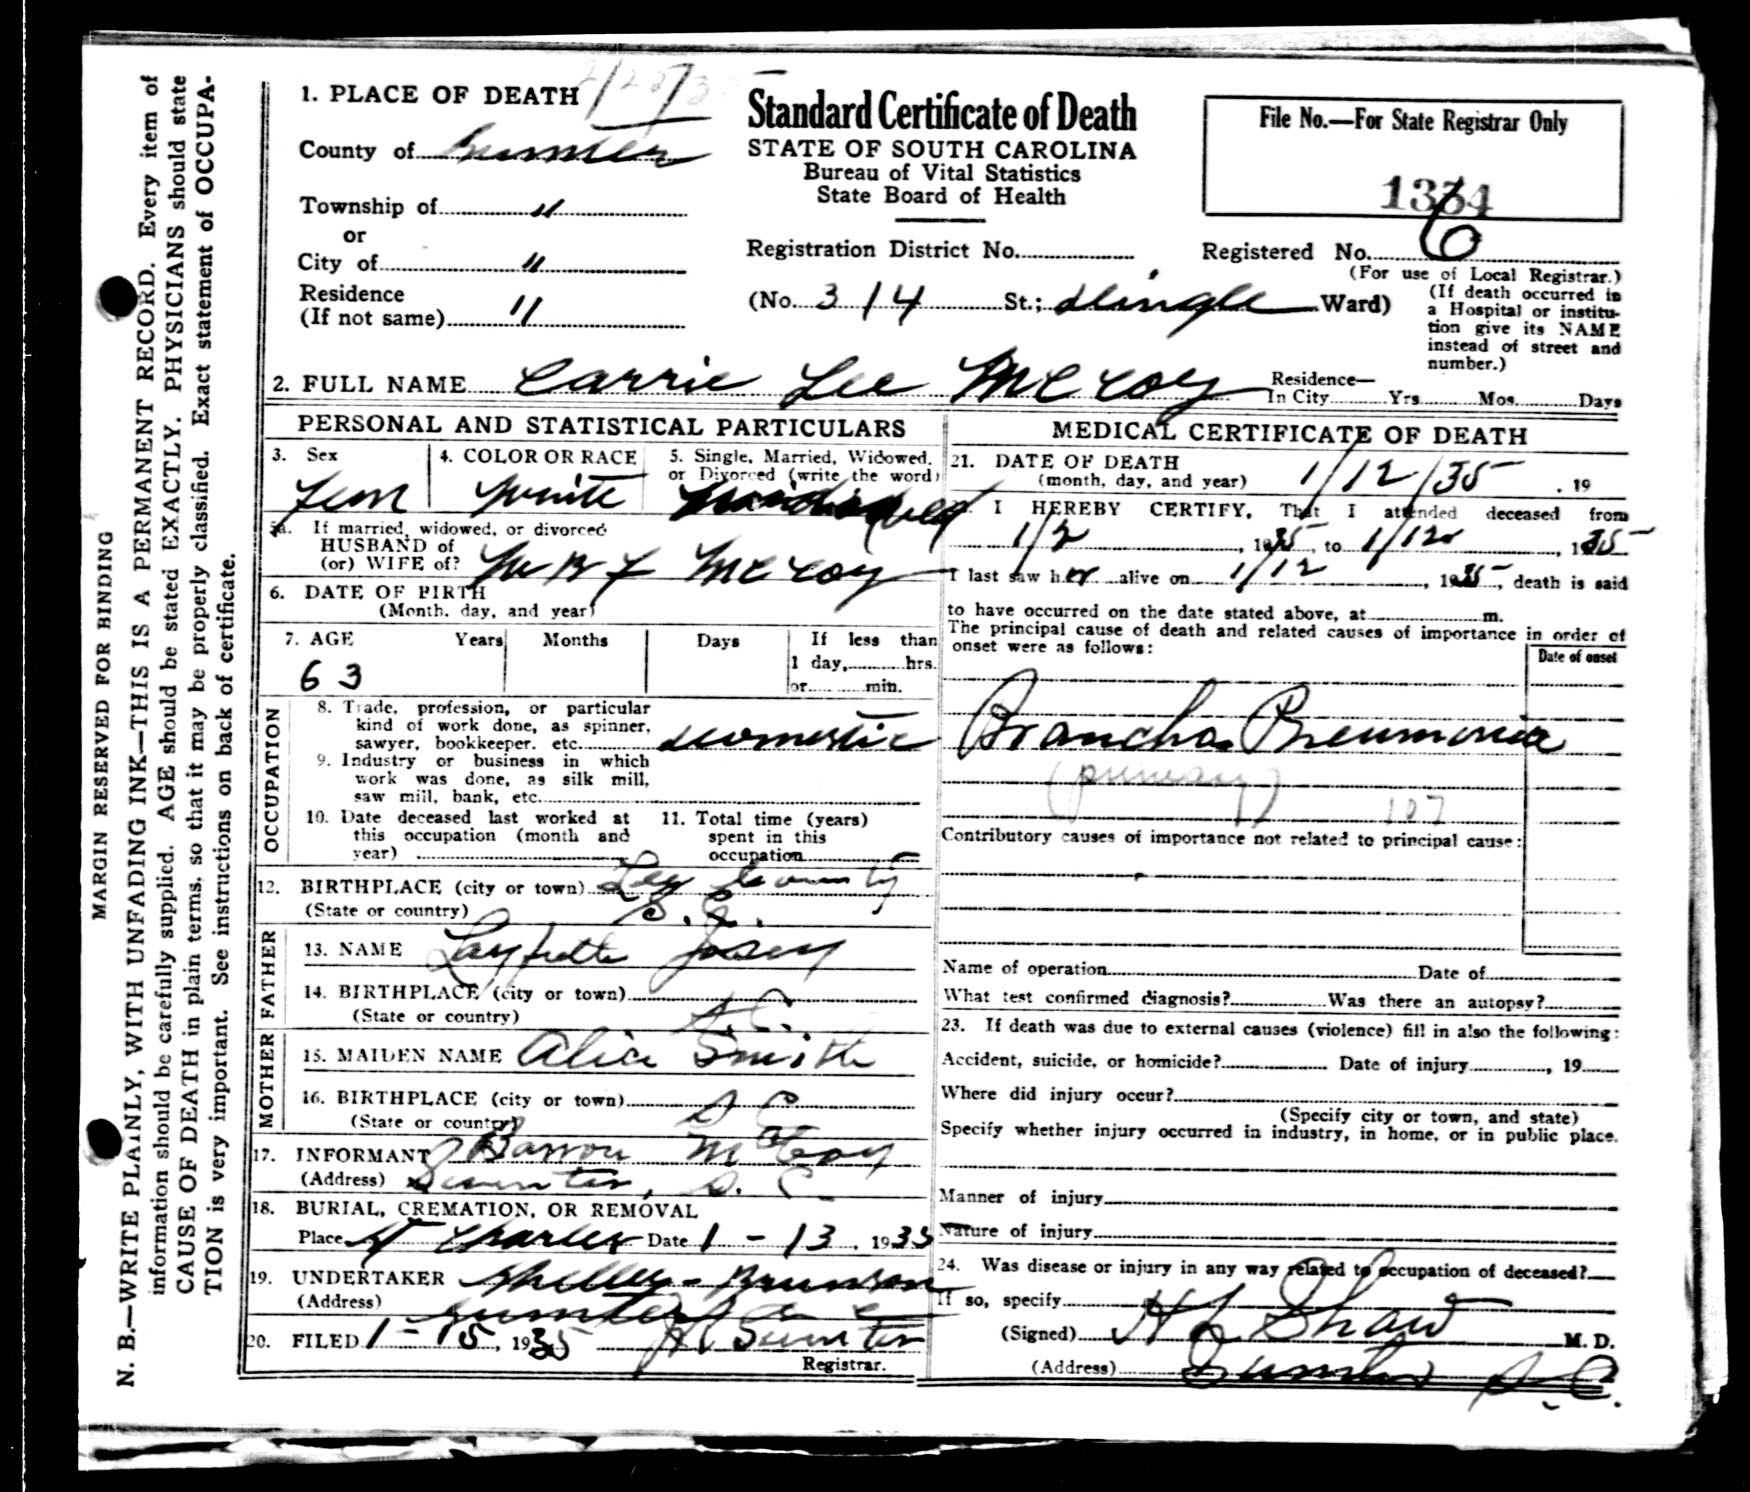 N. B.—WRITE PLAINLY, WITH UNFADING INK—THIS IS A PERMANENT RECORD. Every item of
information should be carefully supplied. AGE should be stated EXACTLY. PHYSICIANS should state
CAUSE OF DEATH in plain terms, so that it may be properly classified. Exact statement of OCCUPA-
TION is very important. See instructions on back of certificate.
MARGIN RESERVED FOR BINDING
1. PLACE OF DEATH
County of Sumter
Township of "
or
City of "
Residence
(If not same) "
Standard Certificate of Death
STATE OF SOUTH CAROLINA
Bureau of Vital Statistics
State Board of Health
Registration District No.
(No. 314 St.; Dingle Ward)
File No.—For State Registrar Only
1364
Registered No. 6
(For use of Local Registrar.)
(If death occurred in
a Hospital or institu-
tion give its NAME
instead of street and
number.)
2. FULL NAME Carrie Lee McCoy
Residence—
In City Yrs. Mos. Days
PERSONAL AND STATISTICAL PARTICULARS
3. Sex
Fem
4. COLOR OR RACE
White
5. Single, Married, Widowed,
or Divorced (write the word)
5a. If married, widowed, or divorced
HUSBAND of
(or) WIFE of? McCoy
6. DATE OF BIRTH
(Month, day, and year)
7. AGE Years Months Days If less than
1 day, hrs.
or min.
63
OCCUPATION
8. Trade, profession, or particular
kind of work done, as spinner,
sawyer, bookkeeper. etc. domestic
9. Industry or business in which
work was done, as silk mill,
saw mill, bank, etc.
10. Date deceased last worked at
this occupation (month and
year)
11. Total time (years)
spent in this
occupation
12. BIRTHPLACE (city or town) Lee County
(State or country) S. C.
FATHER
13. NAME Layfette Josey
14. BIRTHPLACE (city or town)
(State or country) S. C.
MOTHER
15. MAIDEN NAME Alice Smith
16. BIRTHPLACE (city or town)
(State or country) S C
17. INFORMANT Barron McCoy
(Address) Sumter, S. C.
18. BURIAL, CREMATION, OR REMOVAL
Place St Charles Date 1-13, 1935
19. UNDERTAKER Shelley-Brunson
(Address) Sumter S C
20. FILED 1-15, 1935
Registrar.
MEDICAL CERTIFICATE OF DEATH
21. DATE OF DEATH
(month, day, and year) 1/12/35 . 19
I HEREBY CERTIFY, That I attended deceased from
1/2, 1935, to 1/12, 1935
I last saw her alive on 1/12, 1935, death is said
to have occurred on the date stated above, at m.
The principal cause of death and related causes of importance in order of
onset were as follows:
Date of onset
Broncho Pneumonia
(primary) 107
Contributory causes of importance not related to principal cause:
Name of operation Date of
What test confirmed diagnosis? Was there an autopsy?
23. If death was due to external causes (violence) fill in also the following:
Accident, suicide, or homicide? Date of injury, 19
Where did injury occur?
(Specify city or town, and state)
Specify whether injury occurred in industry, in home, or in public place.
Manner of injury
Nature of injury
24. Was disease or injury in any way related to occupation of deceased?
If so, specify
(Signed) H L Shaw M. D.
(Address) Sumter S. C.